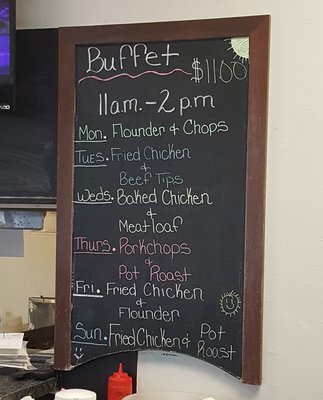 Buffet
$11.00
11am.-2pm
Mon. Flounder & Chops
Tues. Fried Chicken
&
Beef Tips
Weds. Baked Chicken
&
Meatloaf
Thurs. Porkchops
&
Pot Roast
Fri. Fried Chicken
&
Flounder
Sun. Fried Chicken & Pot
Roast